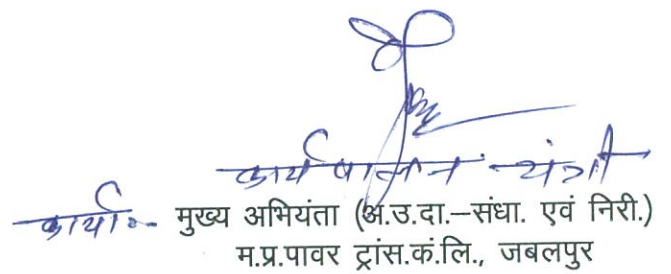 कार्यपालन यंत्री
कार्या:- मुख्य अभियंता (अ.उ.दा.–संधा. एवं निरी.)
म.प्र.पावर ट्रांस.कं.लि., जबलपुर